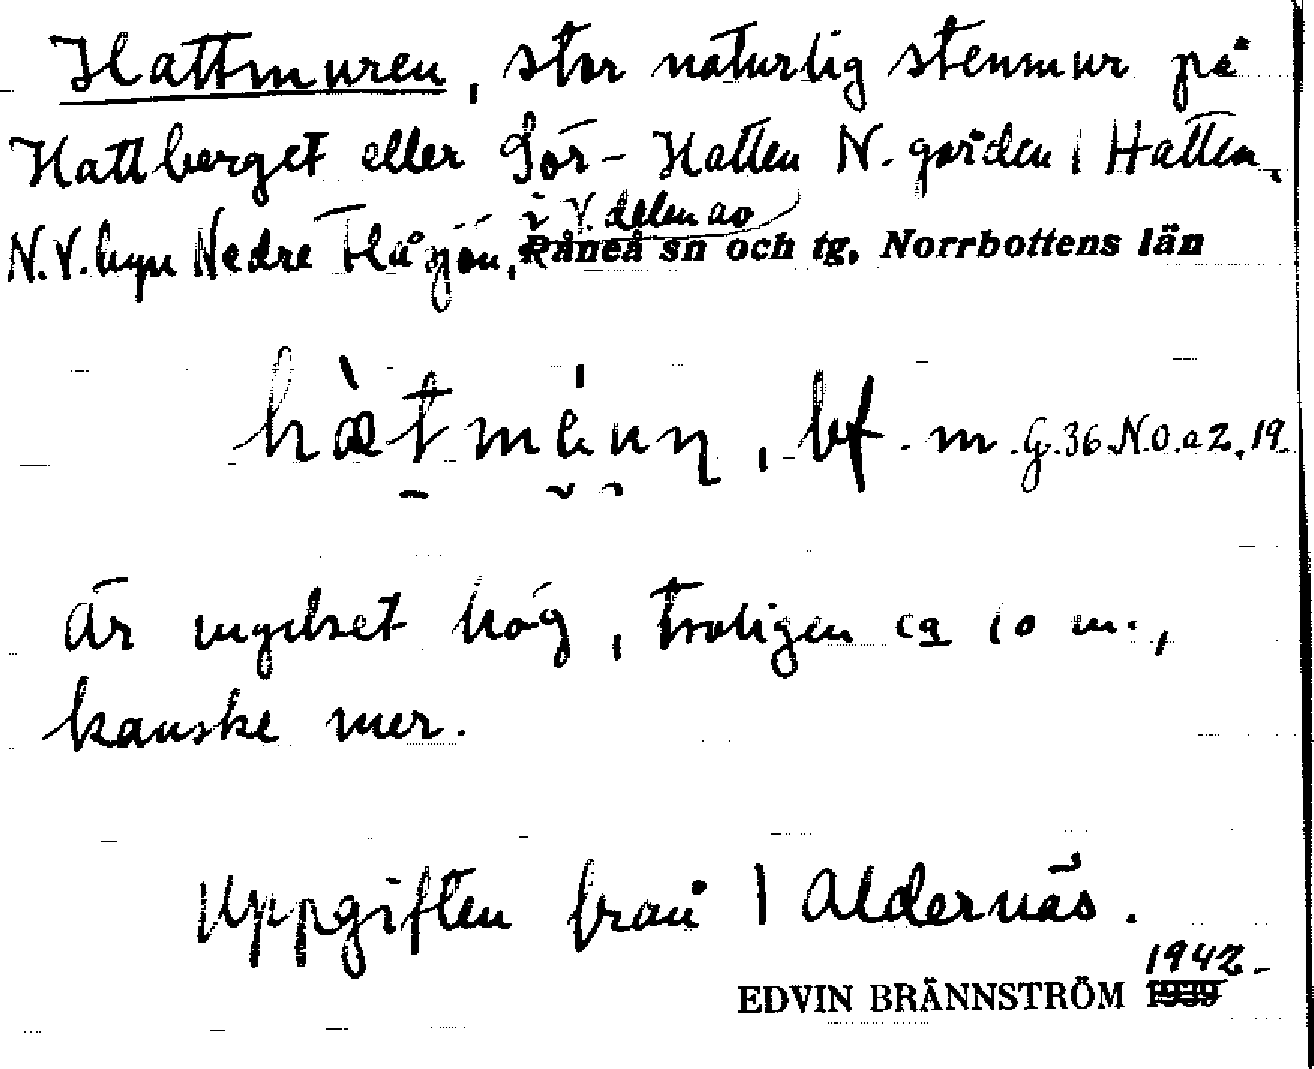 Hattmuren, stor naturlig stenmur på
Hattberget eller Sör-Hatten N. gården 1 Hatten,
N.V. byn Nedre Flåsjön, i V. delen av
Råneå sn och tg, Norrbottens län
bf. m G.36.N.O.a2.19.
Är mycket hög, troligen ca 10 m.,
kanske mer.
Uppgiften från 1 Aldernäs.
1942
EDVIN BRÄNNSTRÖM 1939